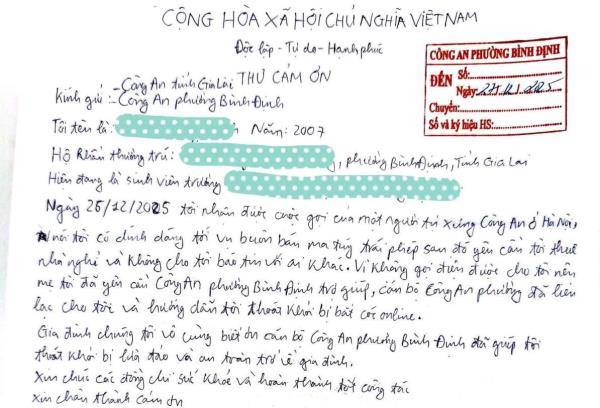 CỘNG HÒA XÃ HỘI CHỦ NGHĨA VIỆT NAM
Độc lập - Tự do - Hạnh phúc
THƯ CẢM ƠN
CÔNG AN PHƯỜNG BÌNH ĐỊNH
ĐẾN Số:
Ngày: 2025
Chuyển:
Số và ký hiệu HS:
- Công An tỉnh Gia Lai
Kính gửi: - Công An phường Bình Định
Tôi tên là: Năm: 2007
Hộ khẩu thường trú: , phường Bình Định, Tỉnh Gia Lai
Hiện đang là sinh viên trường
Ngày 26/12/2025 tôi nhận được cuộc gọi của một người tự xưng Công An ở Hà Nội,
nói tôi có dính dáng tới vụ buôn bán ma túy trái phép sau đó yêu cầu tôi thuê
nhà nghỉ và không cho tôi báo tin với ai khác. Vì không gọi điện được cho tôi nên
mẹ tôi đã yêu cầu Công An phường Bình Định trợ giúp, cán bộ Công An phường đã liên
lạc cho tôi và hướng dẫn tôi thoát khỏi bị bắt cóc online.
Gia đình chúng tôi vô cùng biết ơn cán bộ Công An phường Bình Định đã giúp tôi
thoát khỏi bị lừa đảo và an toàn trở về gia đình.
Xin chúc các đồng chí sức khỏe và hoàn thành tốt công tác
Xin chân thành cảm ơn